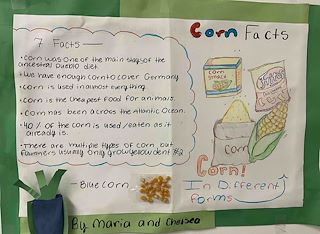 Corn Facts
7 Facts
• Corn was one of the main stays of the
ancestral Pueblo diet.
• We have enough corn to cover Germany
• Corn is used in almost everything.
• Corn is the cheapest food for animals.
• Corn has been across the Atlantic Ocean.
• 40% of the corn is used/eaten as it
already is.
• There are multiple types of corn, but
farmers usually only grow yellow dent #2
CORN
STARCH
corn
Corn!
In Different
forms
- Blue corn
By Maria and Chelsea